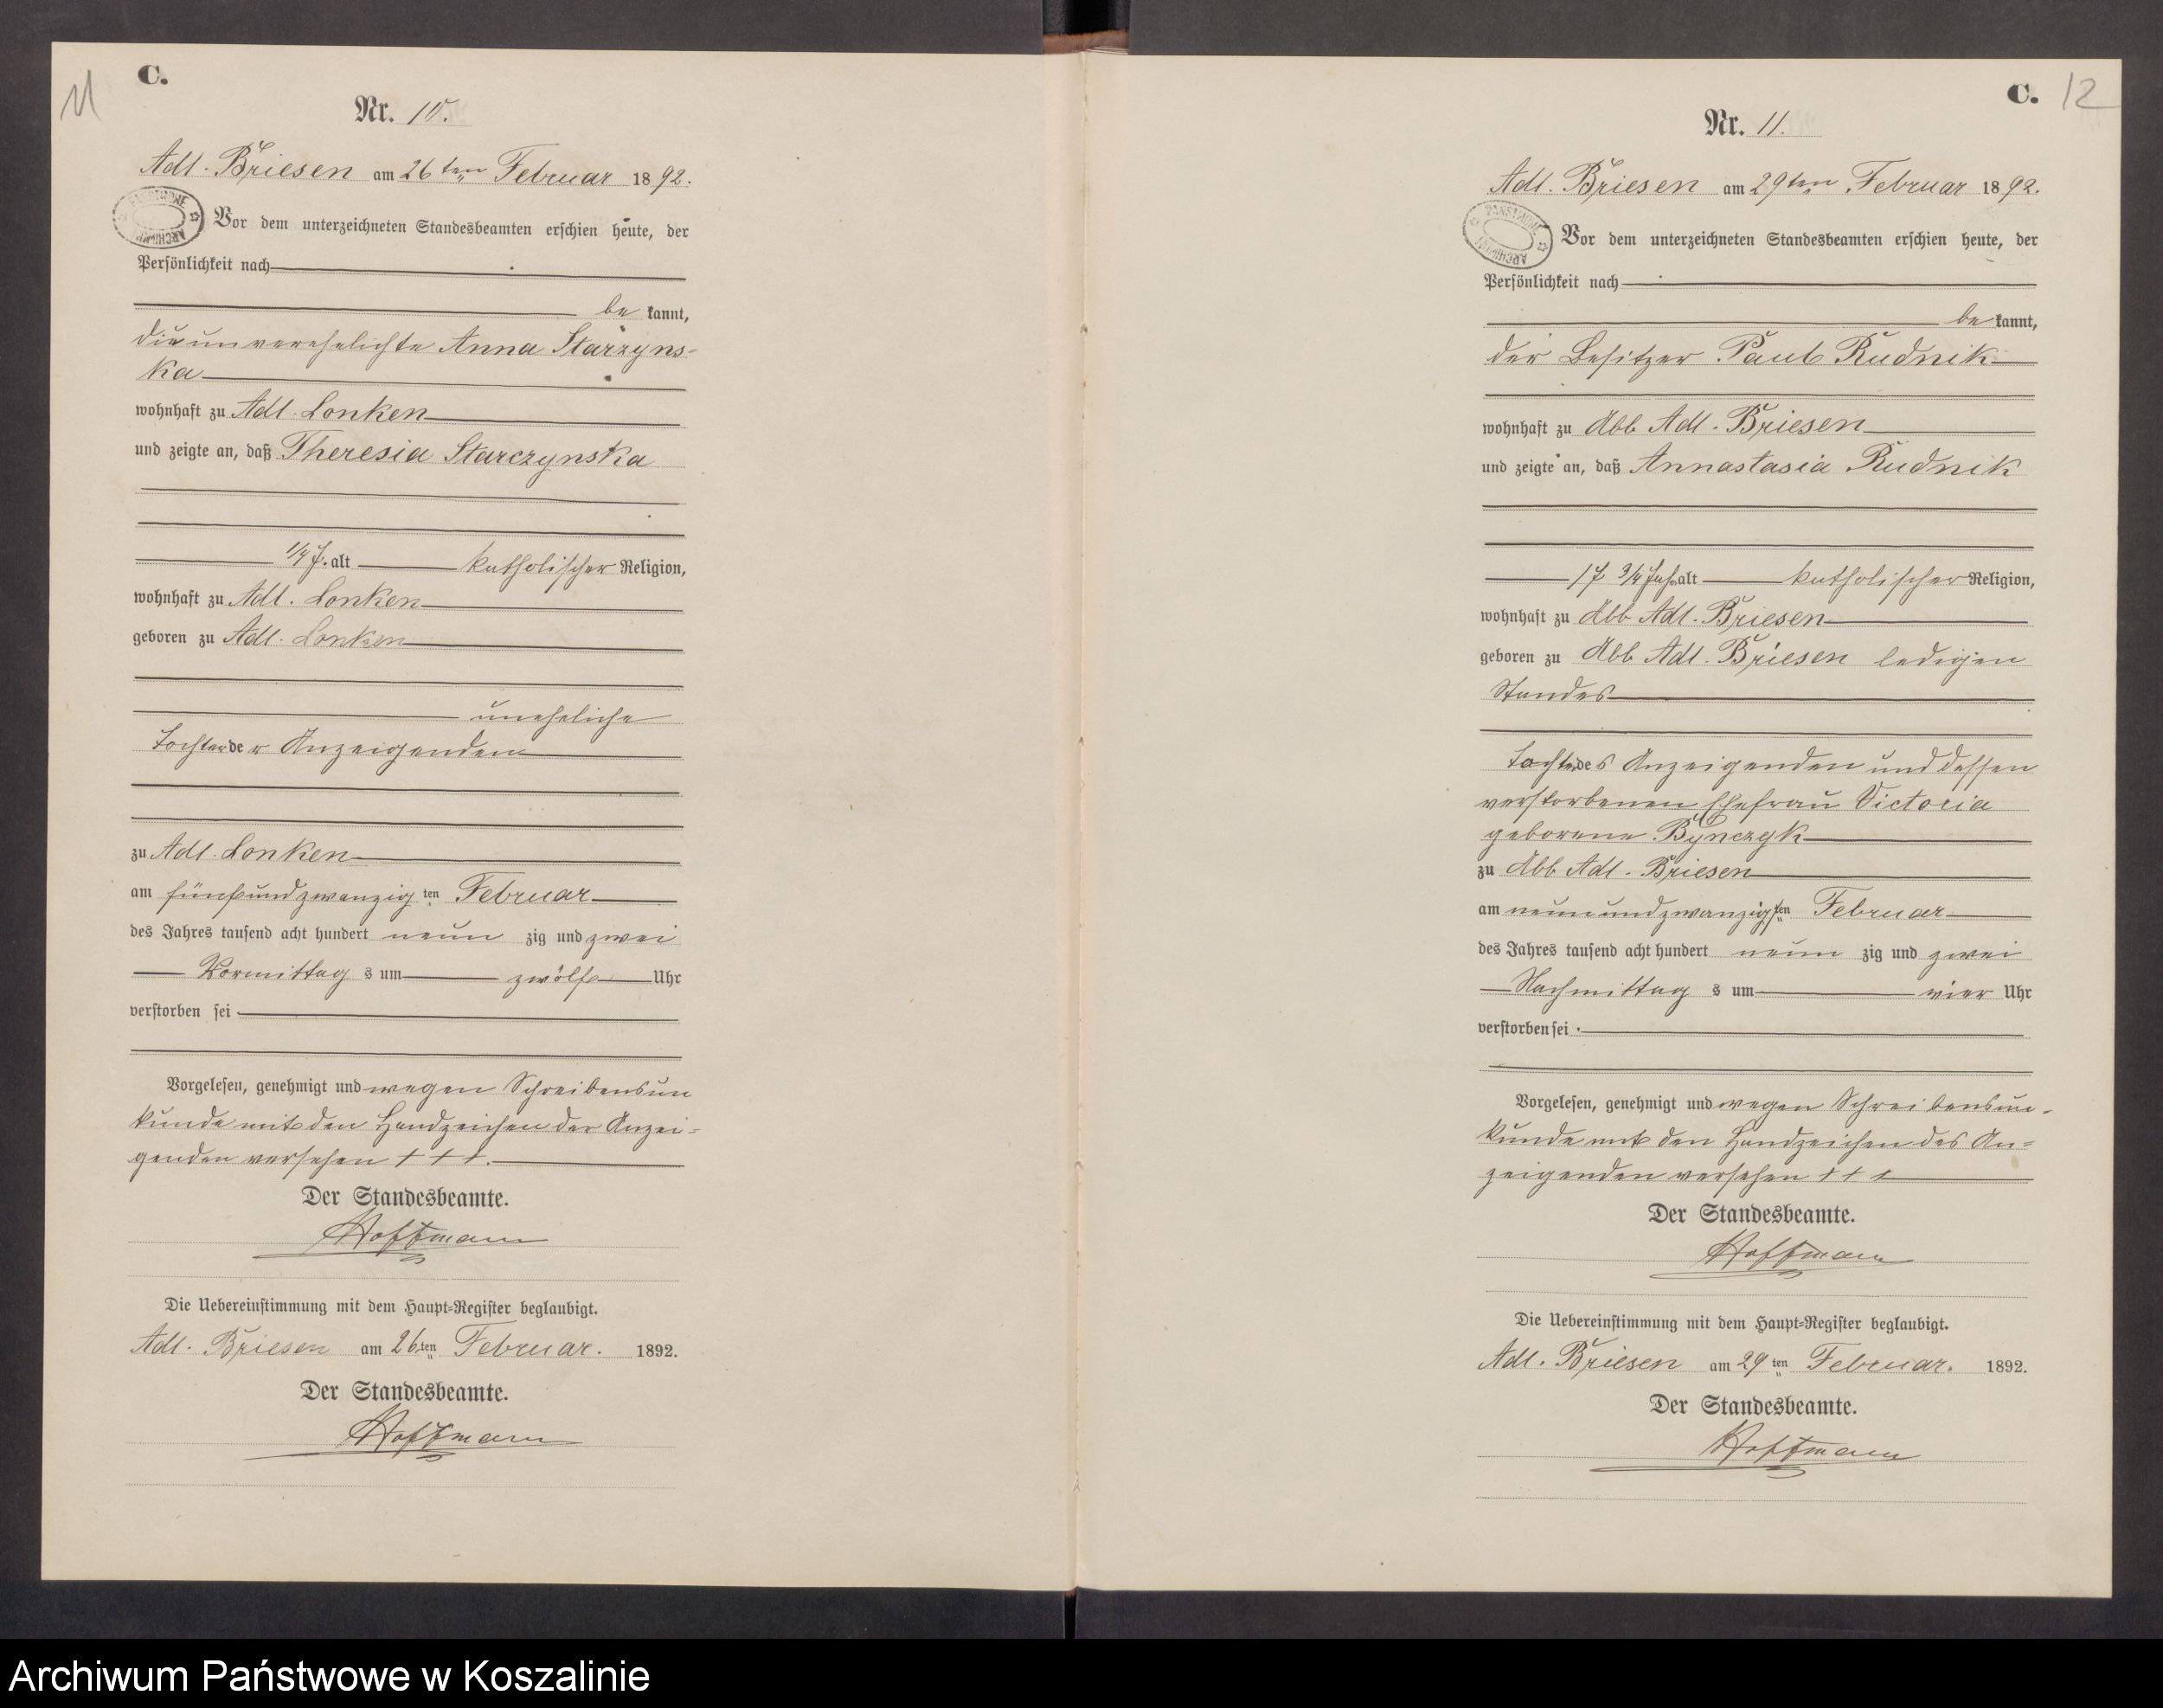 11
C.
Nr. 10.
Adl. Briesen am 26ten Februar 1892.
Vor dem unterzeichneten Standesbeamten erschien heute, der
Persönlichkeit nach
be kannt,
die unverehelichte Anna Starzyns-
ka
wohnhaft zu Adl. Lonken
und zeigte an, daß Theresia Starczynska
1/4 J. alt katholischer Religion,
wohnhaft zu Adl. Lonken
geboren zu Adl. Lonken
uneheliche
Tochter der Anzeigenden
zu Adl. Lonken
am fünfundzwanzig ten Februar
des Jahres tausend acht hundert neun zig und zwei
Vormittag s um zwölf Uhr
verstorben sei
Vorgelesen, genehmigt und wegen Schreibensun
kunde mit den Handzeichen der Anzei-
genden versehen + + +.
Der Standesbeamte.
Hoffmann
Die Uebereinstimmung mit dem Haupt-Register beglaubigt.
Adl. Briesen am 26ten Februar. 1892.
Der Standesbeamte.
Hoffmann
C. 12
Nr. 11.
Adl. Briesen am 29ten Februar 1892.
PANSTWOWE ARCHIWUM
Vor dem unterzeichneten Standesbeamten erschien heute, der
Persönlichkeit nach
be kannt,
der Besitzer Paul Rudnik
wohnhaft zu Abb Adl. Briesen
und zeigte an, daß Annastasia Rudnik
17 3/4 Jah. alt katholischer Religion,
wohnhaft zu Abb Adl. Briesen
geboren zu Abb Adl. Briesen ledigen
Standes
Tochter des Anzeigenden und dessen
verstorbenen Ehefrau Victoria
geborene Bynczyk
zu Abb Adl. Briesen
am neunundzwanzigsten Februar
des Jahres tausend acht hundert neun zig und zwei
Nachmittag s um vier Uhr
verstorben sei
Vorgelesen, genehmigt und wegen Schreibensun-
kunde mit den Handzeichen des An-
zeigenden versehen + + +
Der Standesbeamte.
Hoffmann
Die Uebereinstimmung mit dem Haupt-Register beglaubigt.
Adl. Briesen am 29ten Februar. 1892.
Der Standesbeamte.
Hoffmann
Archiwum Państwowe w Koszalinie